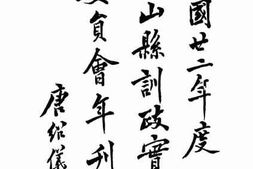 國廿二年度
山縣訓政實
委員會年刊
唐紹儀